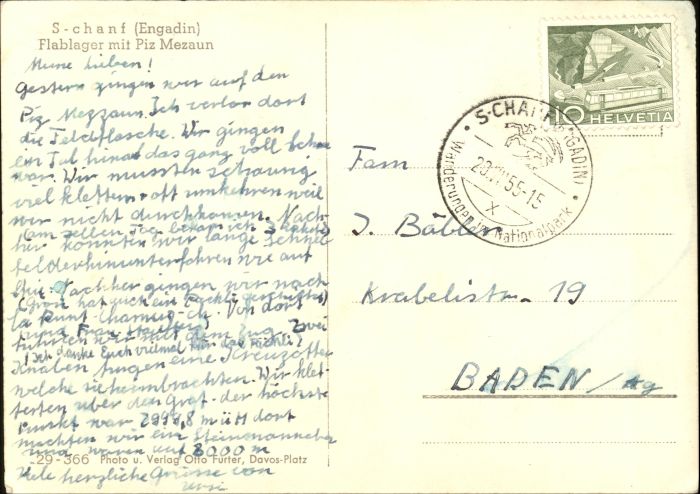 S-chanf (Engadin)
Flablager mit Piz Mezaun
Meine Lieben!
Gestern gingen wir auf den
Piz Mezzaun. Ich verlor dort
die Feldflasche. Wir gingen
ein Tal hinab das ganz voll
war. Wir mussten schaurig
viel klettern + oft umkehren weil
wir nicht durchkamen. Nach-
(Am selben Tag bekam ich
her konnten wir lange Schnee
felder hinunterfahren wie auf
Nachher gingen wir nach
(Grosi hat auch ein Päckli geschickt)
la Punt-Chamues-ch. Von dort
und Frau
fuhren wir mit dem Zug. Zwei
(Ich danke Euch vielmal für das
Knaben fingen eine Kreuzotter
welche sie heimbrachten. Wir klet-
terten über den Grat. der höchste
Punkt war 2999,8 m ü M dort
machten wir ein
und waren auf 3000 m
29-366 Photo u. Verlag Otto Furter, Davos-Platz
Viele herzliche Grüsse von
Ursi
10 HELVETIA
S-CHANF (ENGADIN)
55-15
X
Wanderungen im Nationalpark
Fam
J.
Krabelistr. 19
BADEN / Ag